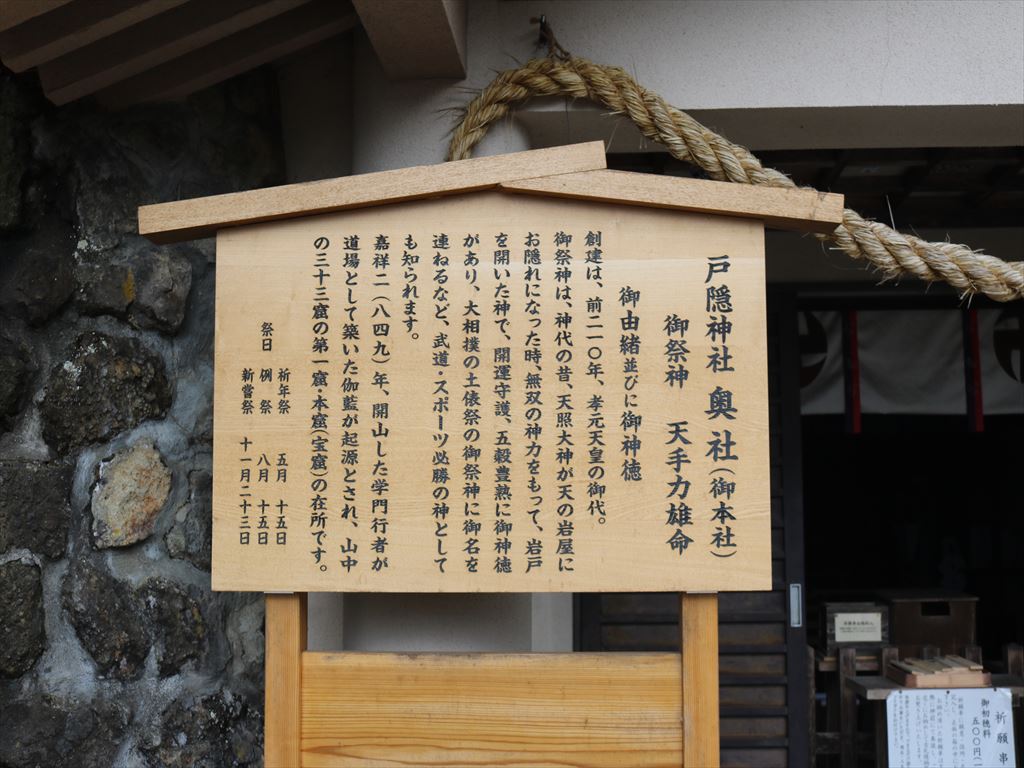 戸隠神社 奥社（御本社）
御祭神 天手力雄命
御由緒並びに御神徳
創建は、前二一〇年、孝元天皇の御代。
御祭神は、神代の昔、天照大神が天の岩屋に
お隠れになった時、無双の神力をもって、岩戸
を開いた神で、開運守護、五穀豊熟に御神徳
があり、大相撲の土俵祭の御祭神に御名を
連ねるなど、武道・スポーツ必勝の神として
も知られます。
嘉祥二（八四九）年、開山した学門行者が
道場として築いた伽藍が起源とされ、山中
の三十三窟の第一窟・本窟（宝窟）の在所です。
祭日
祈年祭 五月 十五日
例祭 八月 十五日
新嘗祭 十一月二十三日
祈願串
御初穂料
五００円（